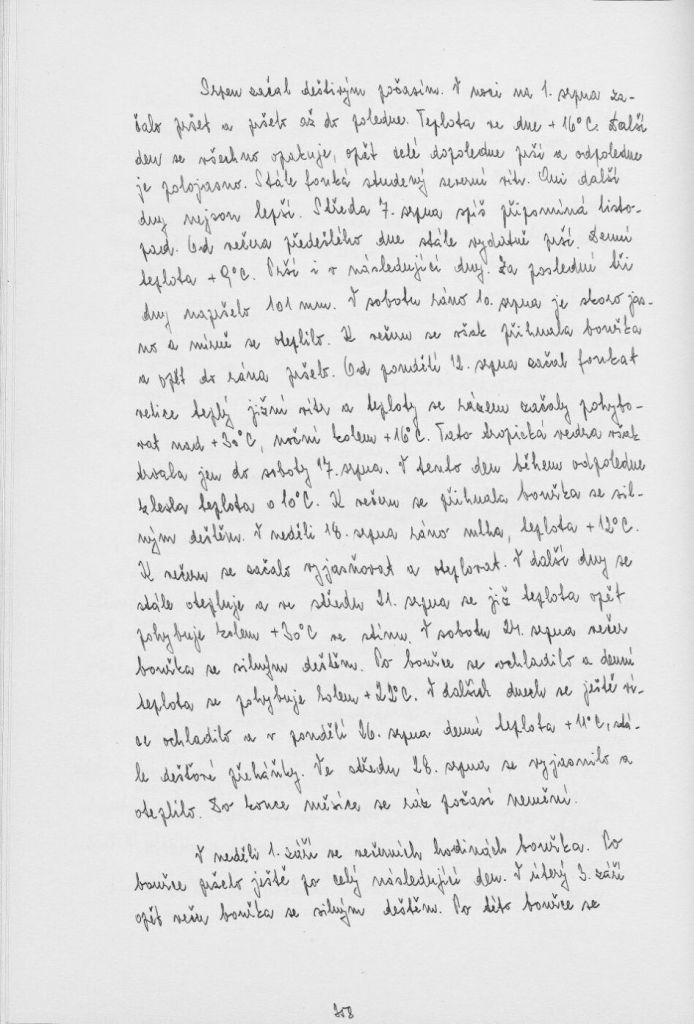 Srpen začal deštivým počasím. V noci na 1. srpna za-
čalo pršet a pršelo až do poledne. Teplota ve dne +16°C. Další
den se všechno opakuje, opět celé dopoledne prší a odpoledne
je polojasno. Stále fouká studený severní vítr. Ani další
dny nejsou lepší. Středa 7. srpna spíš připomíná listo-
pad. Od večera předešlého dne stále vydatně prší. Denní
teplota +9°C. Prší i v následující dny. Za poslední tři
dny napršelo 101 mm. V sobotu ráno 10. srpna je skoro jas-
no a mírně se oteplilo. K večeru se však přihnala bouřka
a opět do rána pršelo. Od pondělí 12. srpna začal foukat
velice teplý jižní vítr a teploty se rázem začaly pohybo-
vat nad +30°C, noční kolem +16°C. Tato tropická vedra však
trvala jen do soboty 17. srpna. V tento den během odpoledne
klesla teplota o 10°C. K večeru se přihnala bouřka se sil-
ným deštěm. V neděli 18. srpna ráno mlha, teplota +12°C.
K večeru se začalo vyjasňovat a oteplovat. V další dny se
stále otepluje a ve středu 21. srpna se již teplota opět
pohybuje kolem +30°C ve stínu. V sobotu 24. srpna večer
bouřka se silným deštěm. Po bouřce se ochladilo a denní
teplota se pohybuje kolem +22°C. V dalších dnech se ještě ví-
ce ochladilo a v pondělí 26. srpna denní teplota +11°C, stá-
le dešťové přeháňky. Ve středu 28. srpna se vyjasnilo a
oteplilo. Do konce měsíce se ráz počasí nemění.
V neděli 1. září ve večerních hodinách bouřka. Po
bouřce pršelo ještě po celý následující den. V úterý 3. září
opět večer bouřka se silným deštěm. Po této bouřce se